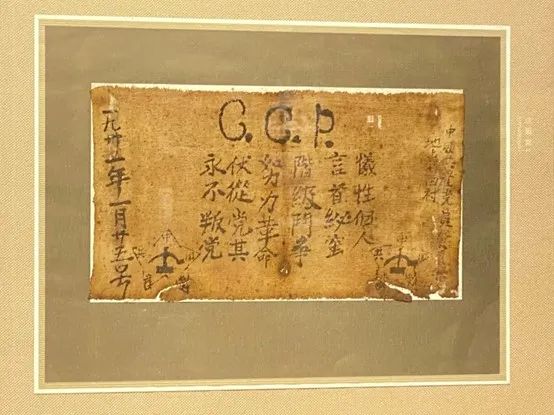 C.C.P.
中国共产党員
地点
犧牲個人
言首秘蜜
階級鬥争
努力革命
伏從党其
永不叛党
一九卅一年一月廿五号